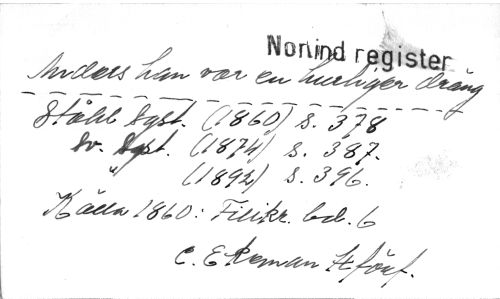 Nord register
Anders han var en hurtiger dräng
Ståhl Dyst. (1860) s. 378
Sv. Dyst. (1874) s. 387.
" (1892) s. 396.
Källa 1860: Filikr. bd. 6
C. Ekeman förf.